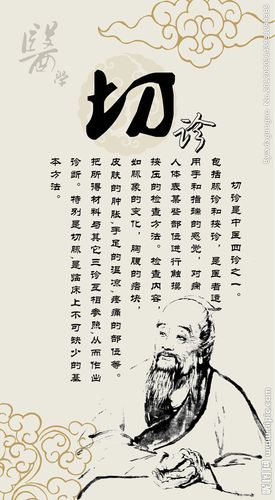 醫学
切诊
切诊是中医四诊之一。
包括脉诊和按诊，是医者运
用手和指端的感觉，对病
人体表某些部位进行触摸
按压的检查方法。检查内容，
如脉象的变化，胸腹的痞块，
皮肤的肿胀，手足的温凉，疼痛的部位等。
把所得材料与其它三诊互相参照，从而作出
诊断。特别是切脉，是临床上不可缺少的基
本方法。
昵图网 www.nipic.com